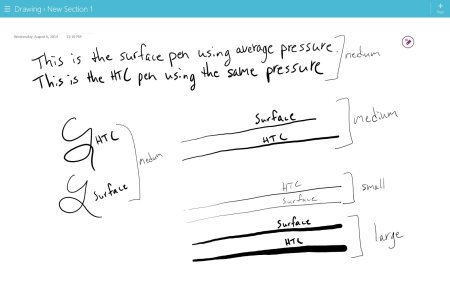 Drawing › New Section 1
Wednesday, August 6, 2014 12:16 PM
This is the surface pen using average pressure.
This is the HTC pen using the same pressure
medium
Surface
HTC
medium
HTC
Surface
medium
HTC
Surface
small
Surface
HTC
large